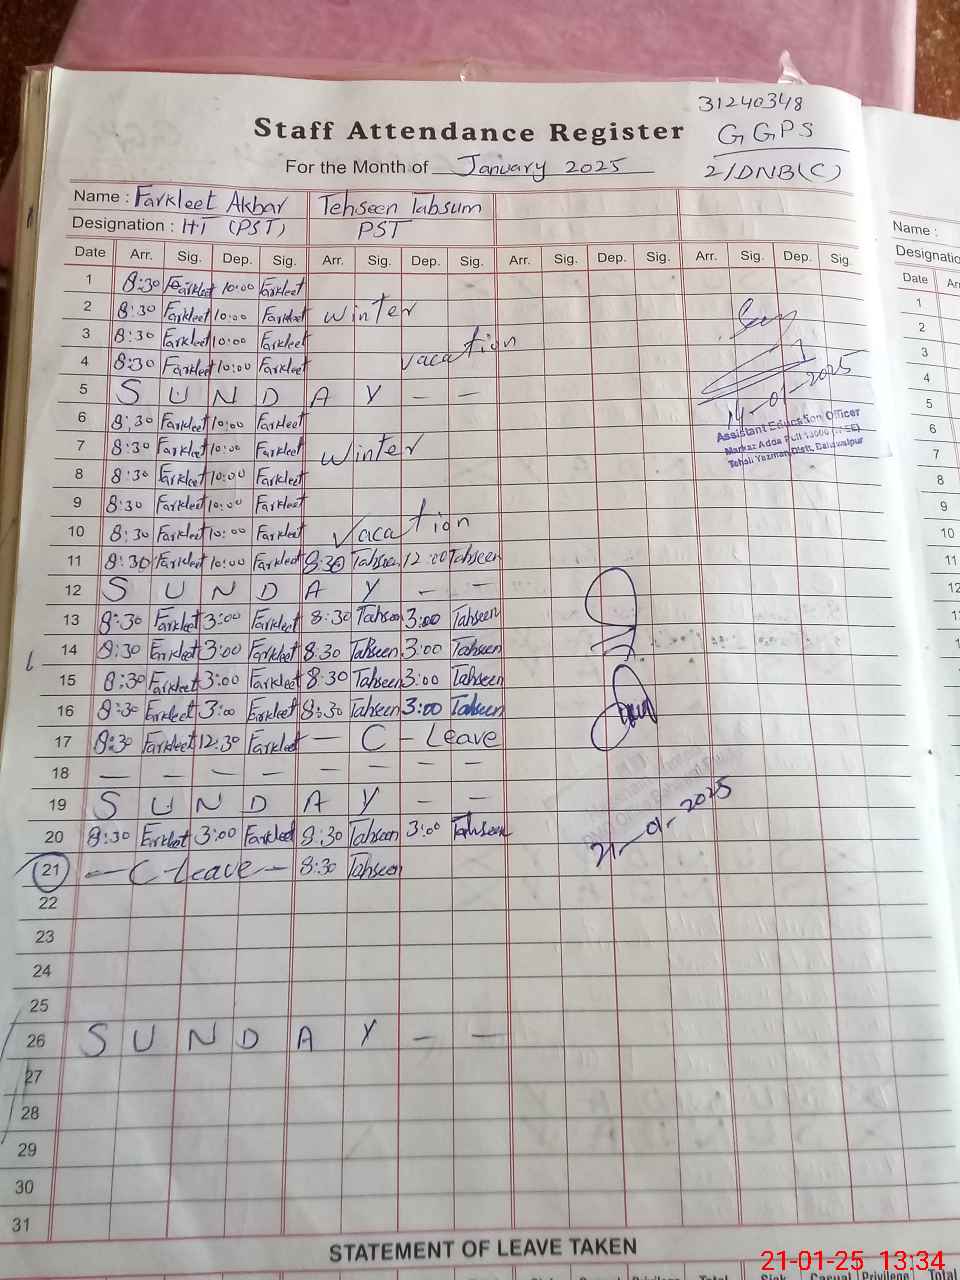 31240348
Staff Attendance Register GGPS
For the Month of January 2025 2/DNB(C)
Name : Farkleet Akbar Tehseen Tabsum
Designation : HT (PST) PST
Date Arr. Sig. Dep. Sig. Arr. Sig. Dep. Sig. Arr. Sig. Dep. Sig. Arr. Sig. Dep. Sig.
1 8:30 Farkleet 10:00 Farkleet
2 8:30 Farkleet 10:00 Farkleet Winter
3 8:30 Farkleet 10:00 Farkleet vacation
4 8:30 Farkleet 10:00 Farkleet
5 S U N D A Y - -
14-01-2025
Assistant Education Officer
6 8:30 Farkleet 10:00 Farkleet
7 8:30 Farkleet 10:00 Farkleet Winter
8 8:30 Farkleet 10:00 Farkleet
9 8:30 Farkleet 10:00 Farkleet
10 8:30 Farkleet 10:00 Farkleet Vacation
11 8:30 Farkleet 10:00 Farkleet 8:30 Tahseen 12:00 Tahseen
12 S U N D A Y - -
13 8:30 Farkleet 3:00 Farkleet 8:30 Tahseen 3:00 Tahseen
14 8:30 Farkleet 3:00 Farkleet 8:30 Tahseen 3:00 Tahseen
15 8:30 Farkleet 3:00 Farkleet 8:30 Tahseen 3:00 Tahseen
16 8:30 Farkleet 3:00 Farkleet 8:30 Tahseen 3:00 Tahseen
17 8:30 Farkleet 12:30 Farkleet - C - Leave
18 - - - - - - - -
19 S U N D A Y - -
20 8:30 Farkleet 3:00 Farkleet 8:30 Tahseen 3:00 Tahseen
21-01-2025
21 - C-Leave - 8:30 Tahseen
22
23
24
25
26 S U N D A Y - -
27
28
29
30
31
STATEMENT OF LEAVE TAKEN
Sick Casual Privilege Total
21-01-25 13:34
Name :
Designatio
Date Arr
1
2
3
4
5
6
7
8
9
10
11
12